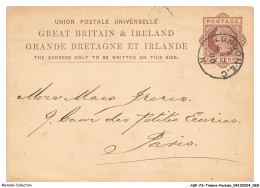 UNION POSTALE UNIVERSELLE
GREAT BRITAIN & IRELAND
GRANDE BRETAGNE ET IRLANDE
THE ADDRESS ONLY TO BE WRITTEN ON THIS SIDE.
POSTAGE
LONDON E.C
Mess Maes Freres
9 Cour des Petites Ecuries
Paris
Mondial-Collection
AUP-P3-Timbre-Postale_04102024_068